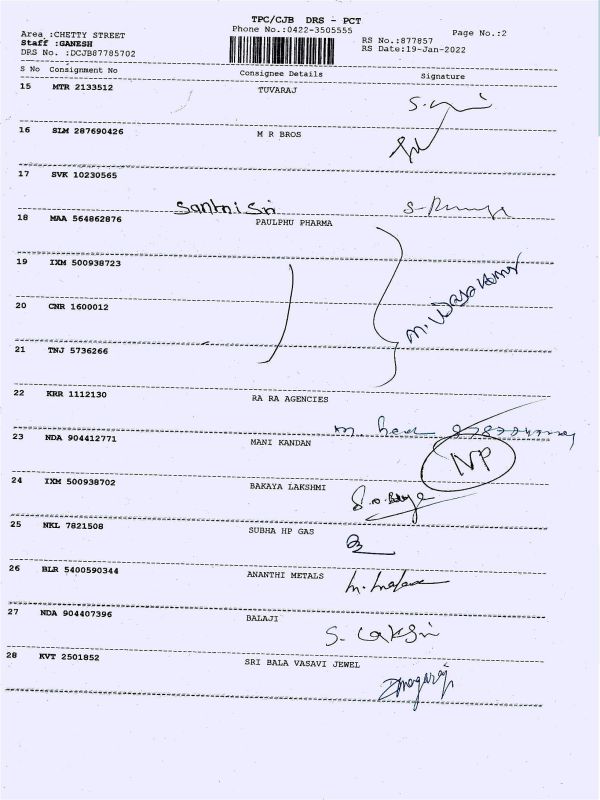 TPC/CJB DRS - PCT
Area :CHETTY STREET
Phone No.:0422-3505555
Page No.:2
Staff :GANESH
RS No.:877857
DRS No. :DCJB87785702
RS Date:19-Jan-2022
S No Consignment No Consignee Details Signature
15 MTR 2133512 TUVARAJ
16 SLM 287690426 M R BROS
17 SVK 10230565
18 MAA 564862876 PAULPHU PHARMA
19 IXM 500938723
20 CNR 1600012
21 TNJ 5736266
22 KRR 1112130 RA RA AGENCIES
23 NDA 904412771 MANI KANDAN NP
24 IXM 500938702 BAKAYA LAKSHMI
25 NKL 7821508 SUBHA HP GAS
26 BLR 5400590344 ANANTHI METALS
27 NDA 904407396 BALAJI
28 KVT 2501852 SRI BALA VASAVI JEWEL